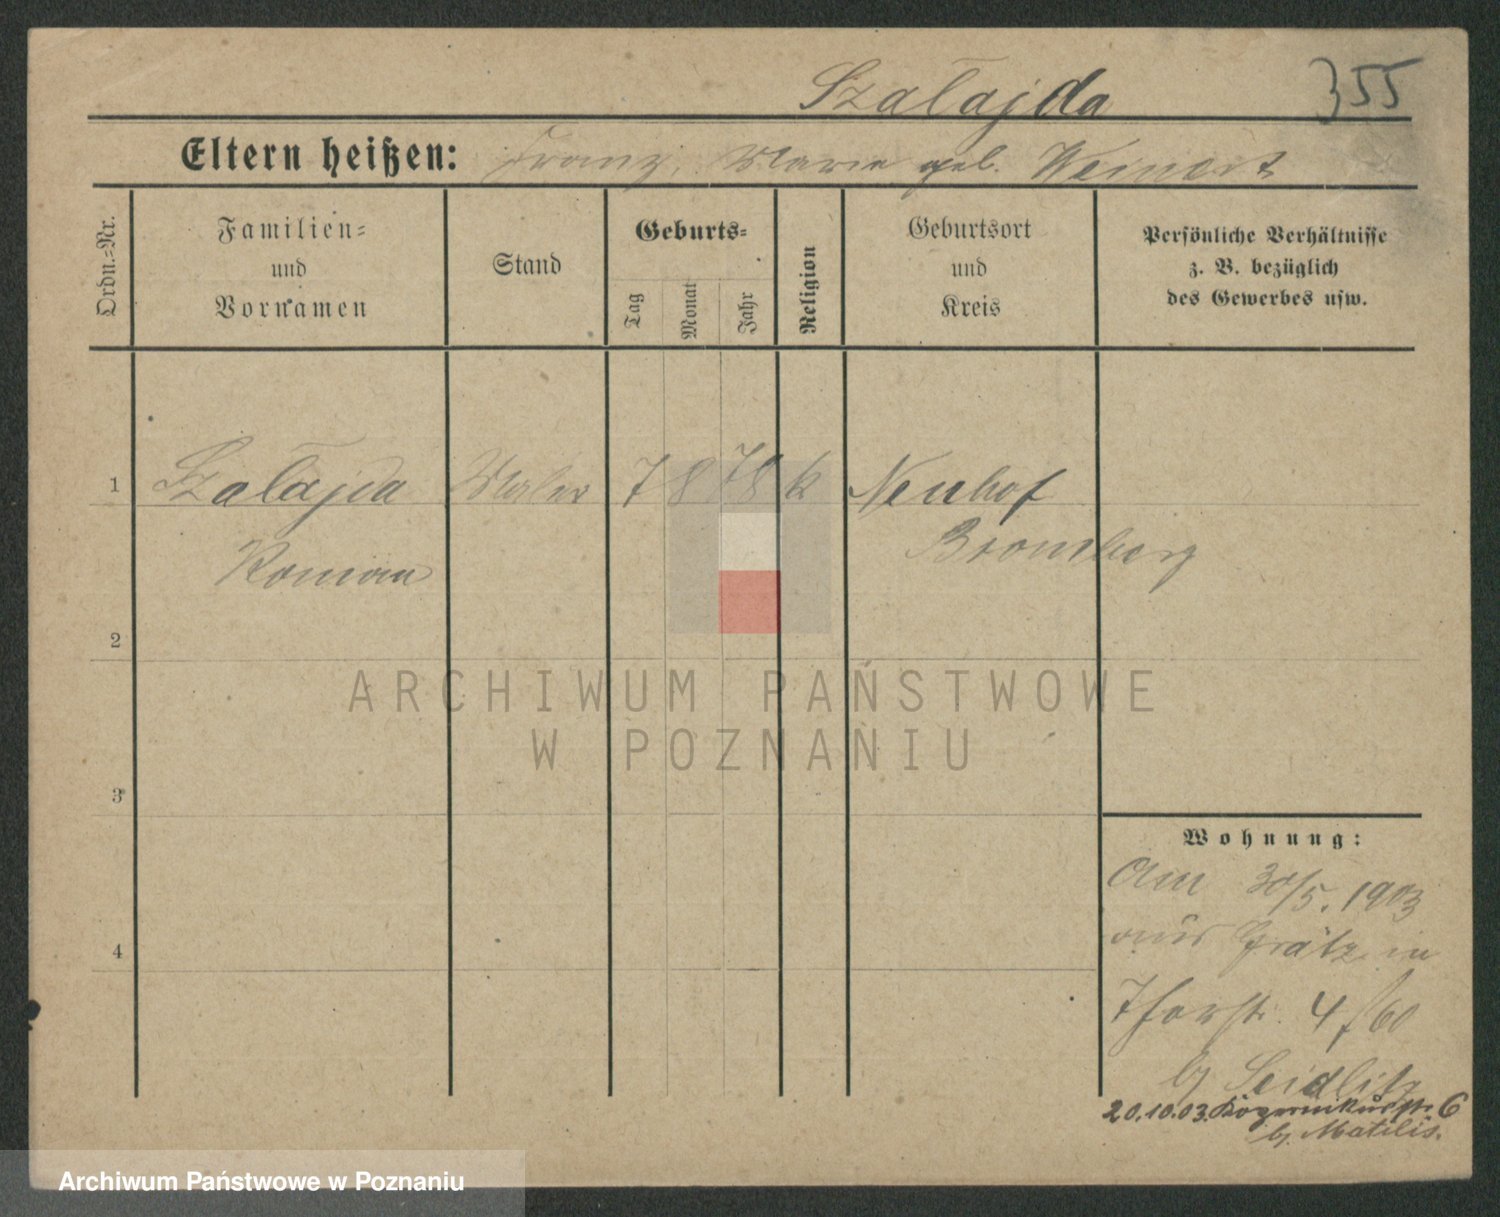 Szalajda
355
Eltern heißen: Franz, Marie geb. Weinert
Ordn.-Nr.
Familien- und Vornamen
Stand
Geburts-
Tag
Monat
Jahr
Religion
Geburtsort und Kreis
Persönliche Verhältnisse z. B. bezüglich des Gewerbes usw.
1 Szalajda Maler 7 8 78 k Neuhof
Roman Bromberg
2
ARCHIWUM PAŃSTWOWE
W POZNANIU
3
4
Wohnung:
Am 30/5. 1903
aus Grätz in
Thorstr. 4/60
bj Seidlitz
20.10.03. 6
bj.
Archiwum Państwowe w Poznaniu